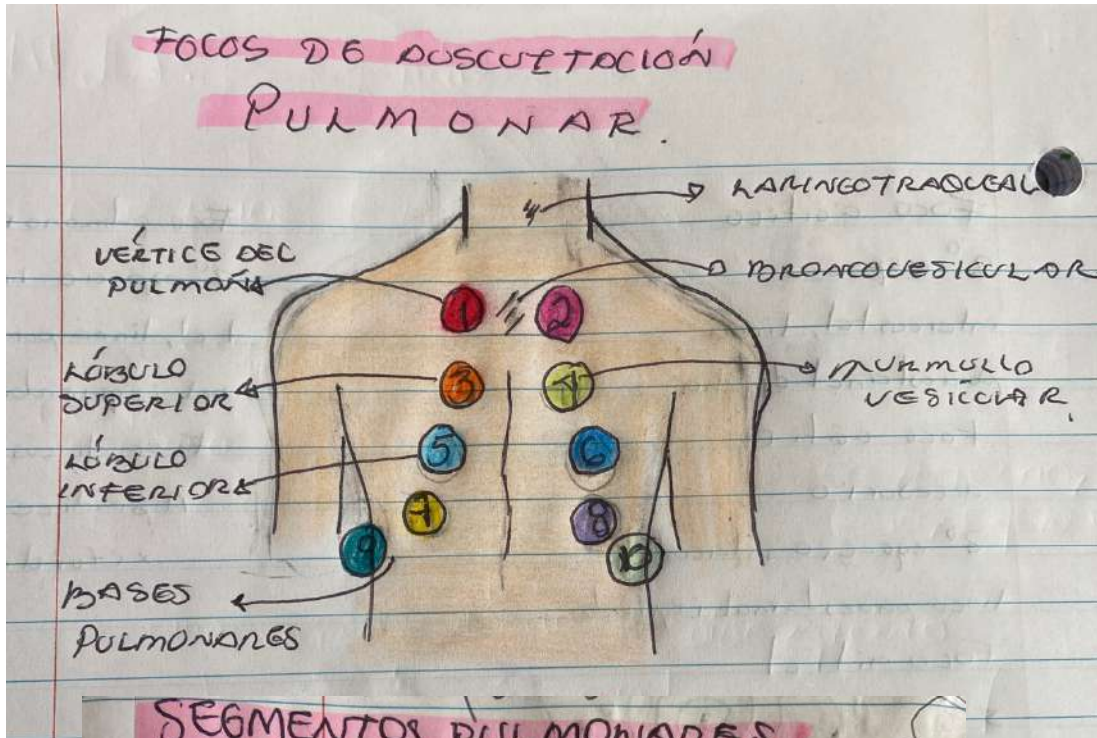 FOCOS DE AUSCULTACIÓN
PULMONAR.
LARINGOTRAQUEAL
VÉRTICE DEL
PULMÓN
BRONCOVESICULAR
1
2
LÓBULO
SUPERIOR
3
4
MURMULLO
VESICULAR.
LÓBULO
INFERIOR
5
6
7
8
9
10
BASES
PULMONARES
SEGMENTOS PULMONARES